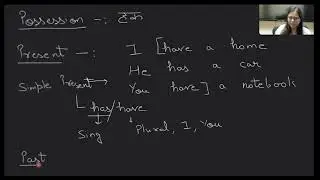 Possession -: हक
Present -: I [have a home
He has a car
Simple Present You have] a notebook
has/have
Sing Plural, I, You
Past